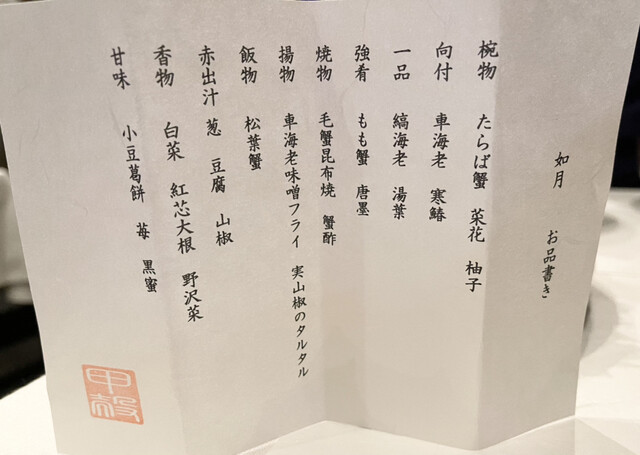 如月　お品書き
椀物　たらば蟹　菜花　柚子
向付　車海老　寒鰆
一品　縞海老　湯葉
強肴　もも蟹　唐墨
焼物　毛蟹昆布焼　蟹酢
揚物　車海老味噌フライ　実山椒のタルタル
飯物　松葉蟹
赤出汁　葱　豆腐　山椒
香物　白菜　紅芯大根　野沢菜
甘味　小豆葛餅　苺　黒蜜
甲殻